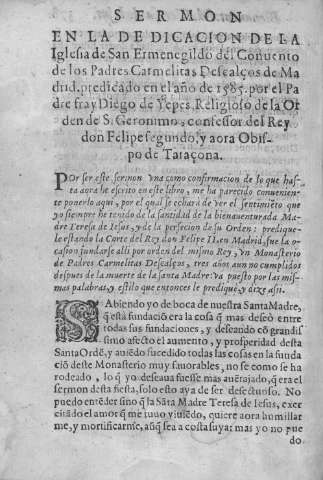 SERMON
EN LA DEDICACION DE LA
Iglesia de San Ermenegildo del Conuento
de los Padres Carmelitas Descalços de Ma
drid, predicado en el año de 1585. por el Pa
dre fray Diego de Yepes, Religioso de la Or
den de S. Geronimo, confessor del Rey
don Felipe segundo, y aora Obis-
po de Taraçona.
Por ser este sermon vna como confirmacion de lo que has-
ta aora he escrito en este libro, me ha parecido conuenien-
te ponerlo aqui, por el qual se echarà de ver el sentimiẽto que
yo siempre he tenido de la santidad de la bienauenturada Ma-
dre Teresa de Iesus, y de la perfecion de su Orden: predique-
le estando la Corte del Rey don Felipe II. en Madrid, fue la o-
casion fundarse alli por orden del mismo Rey, vn Monasterio
de Padres Carmelitas Descalços, tres años aun no cumplidos
despues de la muerte de la santa Madre: va puesto por las mis-
mas palabras, y estilo que entonces le prediquè, y dize assi.
SAbiendo yo de boca de nuestra Santa Madre,
q̃ esta fundaciõ era la cosa q̃ mas deseò entre
todas sus fundaciones, y deseando cõ grandis
simo afecto el aumento, y prosperidad desta
Santa Ordẽ, y auiẽdo sucedido todas las cosas en la fũda
ciõ deste Monasterio muy fauorables, no se como se ha
rodeado, lo q̃ yo deseaua fuesse mas auẽtajado, q̃ era el
sermon desta fiesta, solo esto aya de ser defectuoso. No
puedo entẽder sino q̃ la Sãta Madre Teresa de Iesus, exer
citãdo el amor q̃ me tuuo viuiẽdo, quiere aora humillar
me, y mortificarme, aũq̃ sea a costa suya: mas yo no pue
do